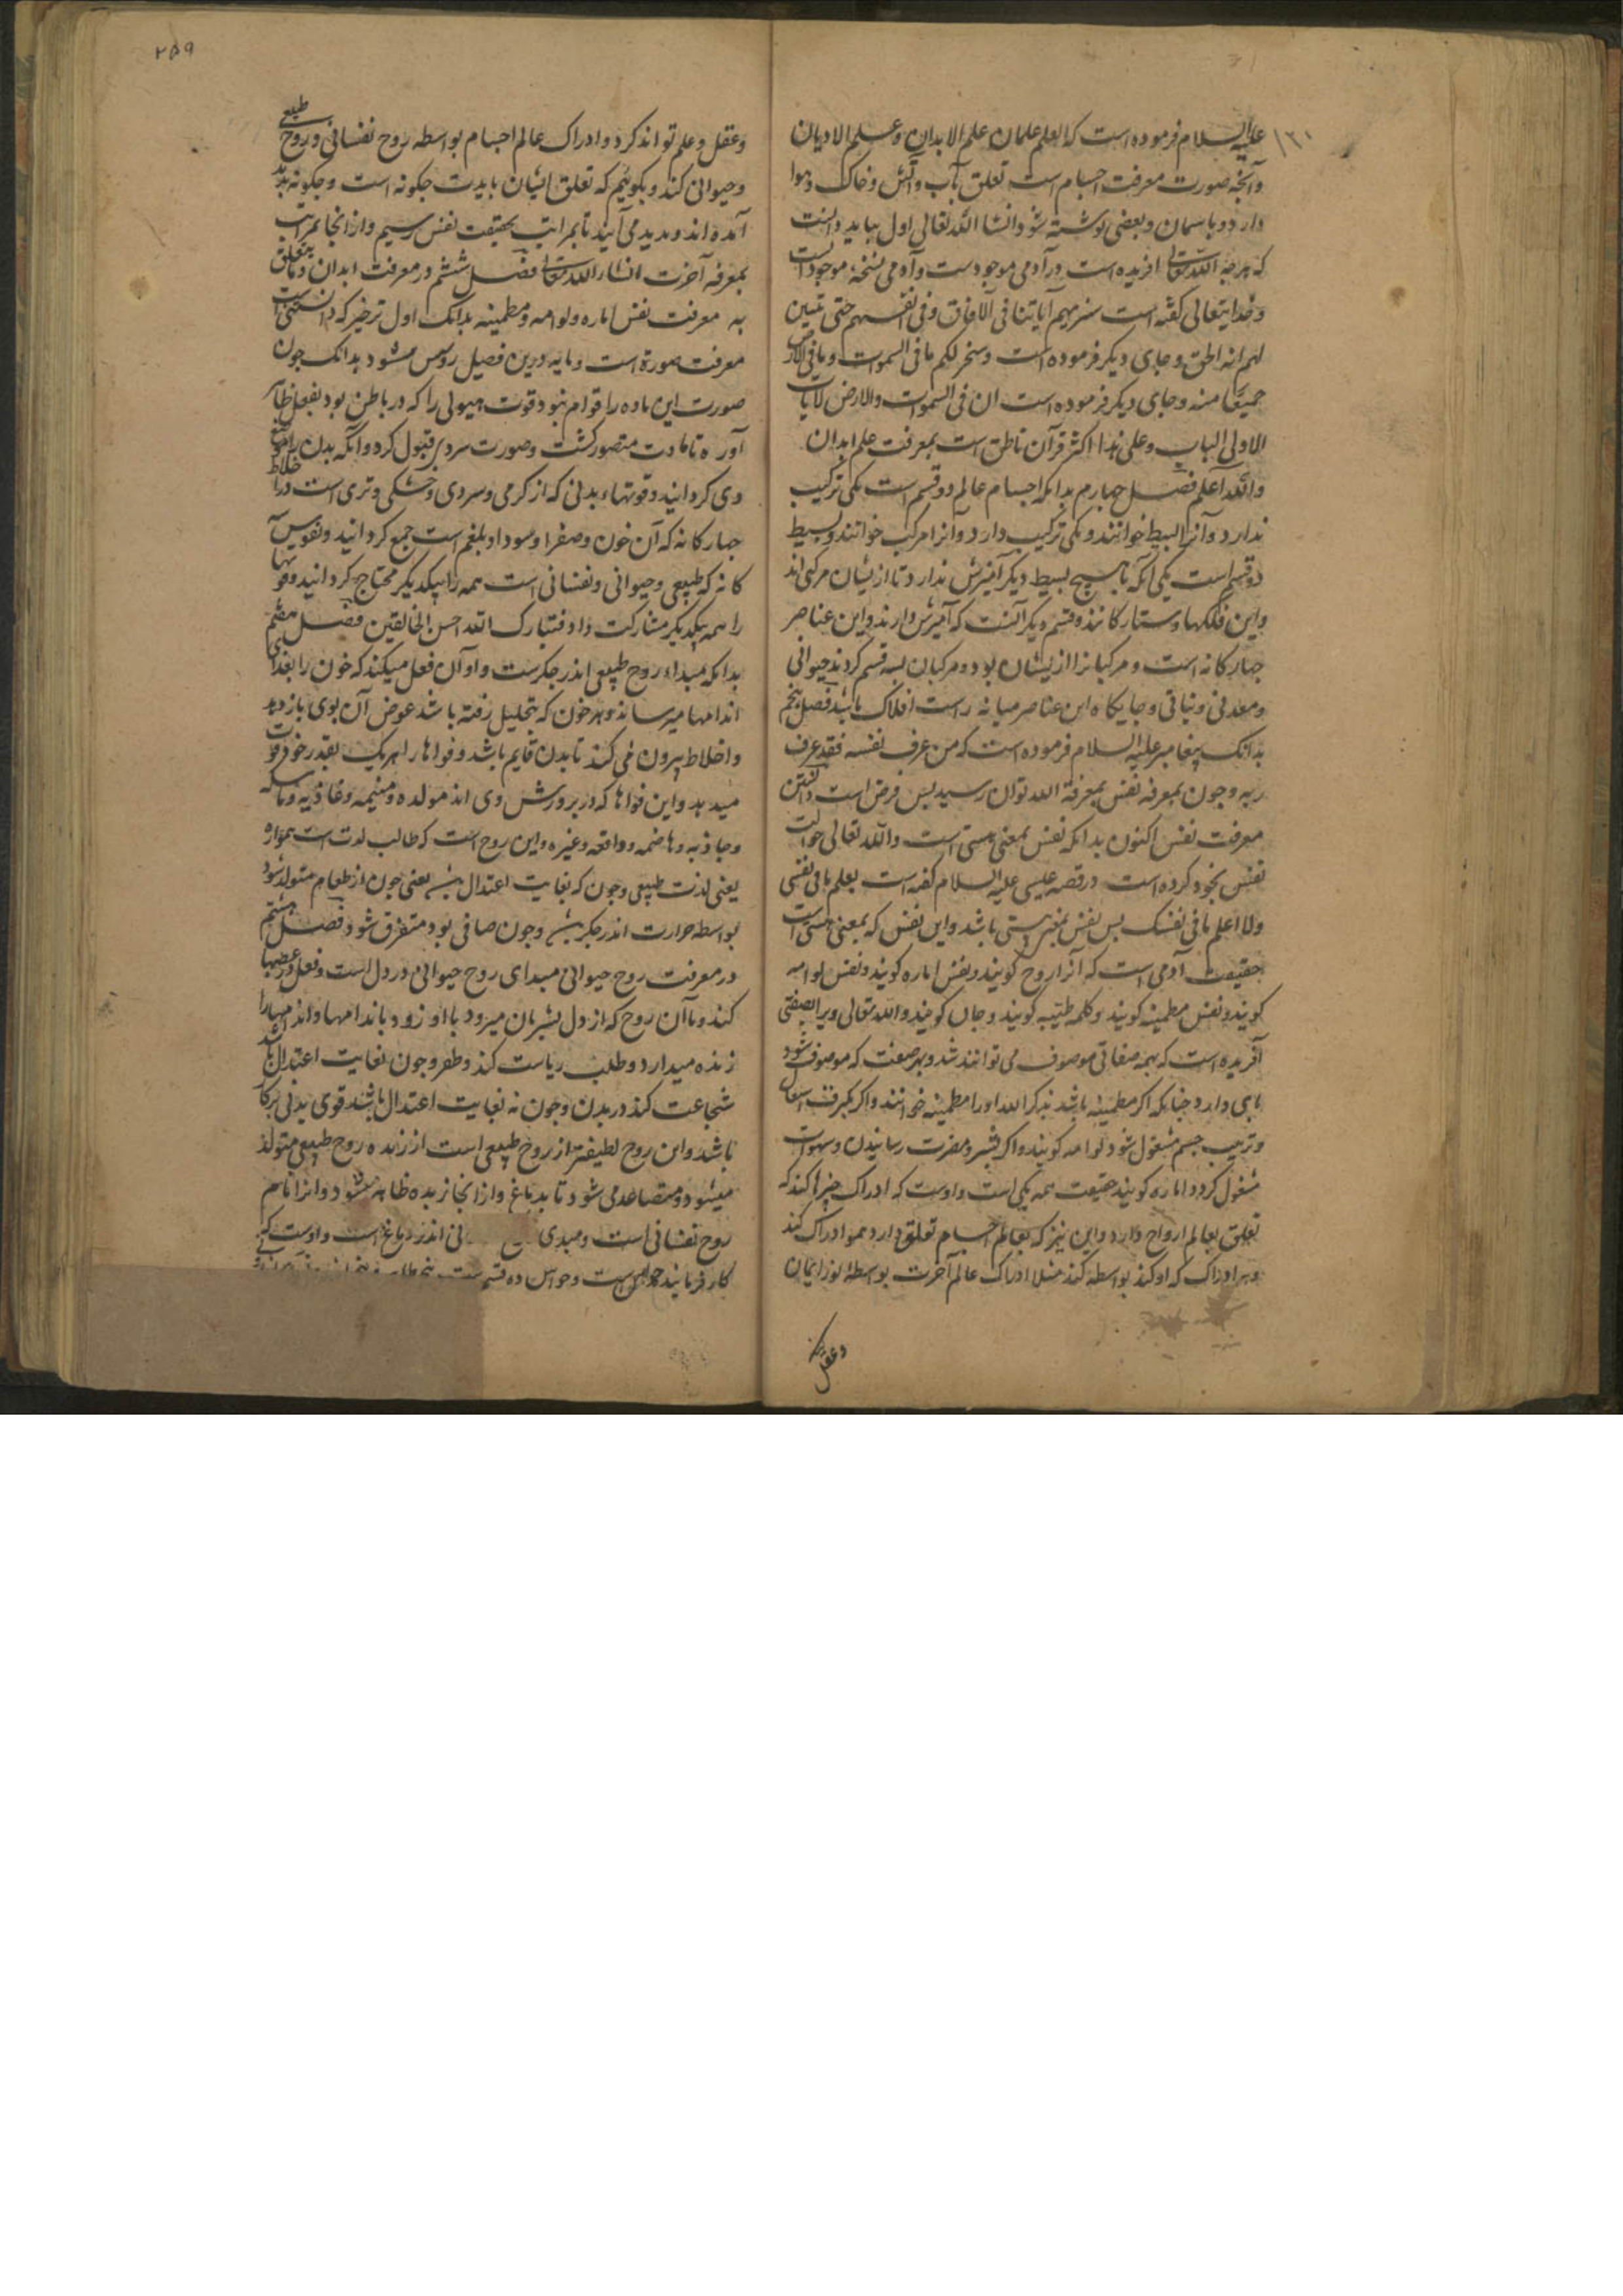 علیه السلام فرموده است که العلم علمان علم الابدان وعلم الادیان
وآنچه صورت معرفت اجسام است تعلق بآب وآتش وخاک وهوا
دارد وباسمان وبعضی نوشته شود انشا الله تعالی اول بباید دانست
که هرچه الله تعالی افریده است در آدمی موجودست وآدمی نسخهٔ موجودات است
وخدایتعالی گفته است سنریهم آیاتنا فی الآفاق وفی انفسهم حتی تبین
لهم انه الحق وجای دیکر فرموده است وسخر لکم ما فی السموات وما فی الارض
جمیعا منه وجای دیکر فرموده است ان فی السموات والارض لآیات
الاولی الباب وعلی هذا اکثر قرآن ناطق است بمعرفت علم ابدان
والله اعلم فصل چهارم بدانکه اجسام عالم دو قسم است یکی ترکیب
ندارد وآنرا بسیط خوانند ویکی ترکیب دارد وانرا مرکب خوانند وبسیط
دو قسم است یکی آنکه با هیچ بسیط دیکر آمیزش ندارد تا ازیشان مرکبی اند
واین فلکها وستارکانند وقسم دیکر آنست که آمیزش دارند واین عناصر
چهارکانه است ومرکبانرا ازیشان بود ومرکبان بسه قسم کردند حیوانی
ومعدنی ونباتی وجایکاه این عناصر میانه راست افلاک باشد فصل پنجم
بدانک پیغامبر علیه السلام فرموده است که من عرف نفسه فقد عرف
ربه وچون بمعرفة نفس بمعرفة الله توان رسید پس فرض است دانستن
معرفت نفس اکنون بدانکه نفس بمعنی هستی است والله تعالی حوالت
نفس بخود کرده است در قصه عیسی علیه السلام گفته است یعلم ما فی نفسی
ولا اعلم ما فی نفسک پس نفس بمعنی هستی باشد واین نفس که بمعنی هستی است
حقیقت آدمی است که آنرا روح کویند ونفس اماره کویند ونفس لوامه
کویند ونفس مطمینه کویند وکلمه طیبه کویند وجان کویند والله تعالی ویرا بصفتی
آفریده است که بهمه صفاتی موصوف می توانند شد وبهر صفت که موصوف شود
نامی دارد چنانکه اکر مطمینه باشد بذکر الله اورا مطمینه خوانند واکر بمعرفت
وترتیب جسم مشغول شود لوامه کویند واکر بشر ومضرت رسانیدن وشهوات
مشغول کردد اماره کویند حقیقت همه یکی است واوست که ادراک چیزها کند که
تعلق بعالم ارواح دارد واین نیز که بعالم اجسام تعلق دارد همو ادراک کند
وهر ادراک که او کند بواسطه کند مثلا ادراک عالم آخرت بواسطهٔ نور ایمان
وعقل
۲۵۹
وعقل وعلم تواند کرد وادراک عالم اجسام بواسطه روح نفسانی وروح طبیعی
وحیوانی کند وبکوییم که تعلق ایشان بابدیت چکونه است وچکونه پدید
آمده اند وپدید می آیند تا بمراتب بحقیقت نفس رسیم واز انجا بمراتب
بمعرفة آخرت انشاء الله تعالی فصل ششم در معرفت ابدان وما یتعلق
به معرفت نفس اماره ولوامه ومطمینه بدانک اول
معرفت صورة است ومایه درین فصل روشن شود بدانک چون
صورت این ماده را قوام نبود قوت هیولی را که در باطن بود بفعل ظاهر
آورد تا مادت متصور کشت وصورت سر دیر قبول کرد وانکه بدن را
وی کردانید وقوتهاء بدنی که از کرمی وسردی وخشکی وتری است در اخلاط
چهارکانه که آن خون وصفرا وسودا وبلغم است جمع کردانید ونفوس
کانه که طبیعی وحیوانی ونفسانی است همه را بیکدیکر محتاج کردانید وقوتها
را همه بیکدیکر مشارکت داد فتبارک الله احسن الخالقین فصل هفتم
بدانکه مبداء روح طبیعی اندر جکرست واو آن فعل میکند که خون را بغذای
اندامها میرساند وهر خون که بتحلیل رفته باشد عوض آن بوی باز دهد
واخلاط بیرون می کند تا بدن قایم باشد وقواها را هریک بقدر خود قوت
میدهد واین قواها که در پرورش وی اند مولده ومنمیه وغاذیه وماسکه
وجاذبه وهاضمه ودافعه وغیره واین روح است که طالب لذت است همواره
یعنی لذت طبیعی وچون که بغایت اعتدال یعنی چون از طعام متولد شود
بواسطه حرارت اندر جکر وچون صافی بود متفرق شود فصل هشتم
در معرفت روح حیوانی مبدای روح حیوانی در دل است وفعل در عصبها
کند وآن روح که از دل بشریان میرود با او رود باندامها واندامهارا
زنده میدارد وطلب ریاست کند وظفر وچون بغایت اعتدال باشد
شجاعت کند در بدن وچون نه بغایت اعتدال باشد قوی بدنی
باشد واین روح لطیفتر از روح طبیعی است از زبده روح طبیعی متولد
میشود ومتصاعد می شود تا بدماغ واز انجا زبده ظاهر میشود وانرا نام
روح نفسانی است ومبدی نی اندر دماغ است واوست که
کار فرمایند حواس است وحواس ده قسم ست پنج